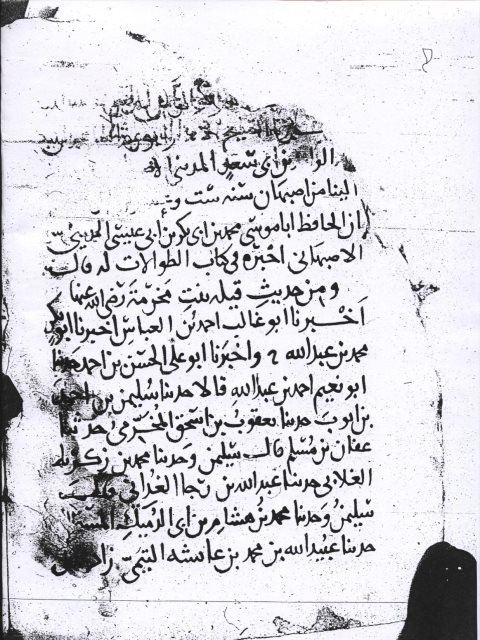 الدين ابي سعد المديني
الينا من اصبهان سنة ست
ان الحافظ ابا موسى محمد بن ابي بكر بن ابي عيسى المديني
الاصبهاني اخبره في كتاب الطوالات له قال
ومن حديث قيلة بنت مخرمة رضي الله عنها
اخبرنا ابو غالب احمد بن العباس اخبرنا ابو
محمد بن عبد الله ح واخبرنا ابو علي الحسن بن احمد حدثنا
ابو نعيم احمد بن عبد الله قالا حدثنا سليمن بن احمد
بن ايوب حدثنا يعقوب بن اسحق المخرمي حدثنا
عفان بن مسلم قال سليمن وحدثنا محمد بن زكريا
الغلابي حدثنا عبد الله بن رجا الغداني قال
سليمن وحدثنا محمد بن هشام بن ابي الدميك المستملي
حدثنا عبيد الله بن محمد بن عائشه التيمي